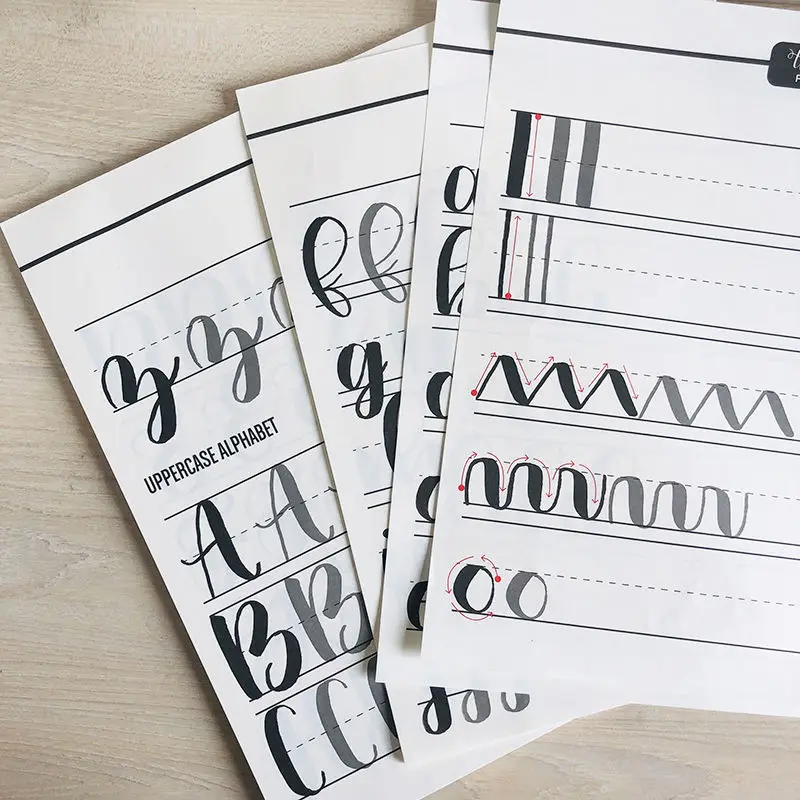 z z
UPPERCASE ALPHABET
A A
B B
C C
f f
g
a
o o